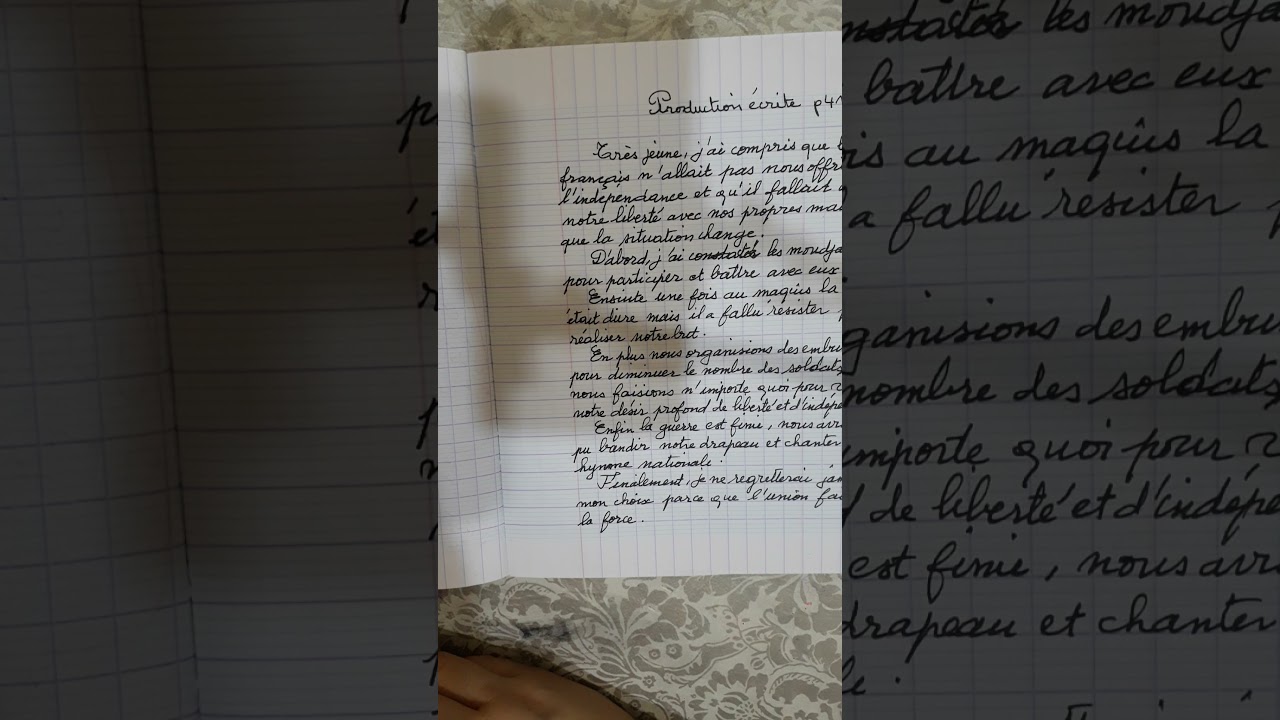 Production écrite p41
Très jeune, j'ai compris que
français n'allait pas nous offr
l'indépendance et qu'il fallait
notre liberté avec nos propres mai
que la situation change.
D'abord, j'ai les moudja
pour participer et battre avec eux
Ensiute une fois au maqûis la
était dure mais il a fallu résister
réaliser notre but.
En plus nous organisions des embu
pour diminuer le nombre des soldats,
nous faisions n'importe quoi pour
notre désir profond de liberté et d'indépe
Enfin la guerre est fini, nous avr
pu brandir notre drapeau et chanter
hymne nationale.
Finalement, je ne regretterai jam
mon choix parce que l'union fai
la force.